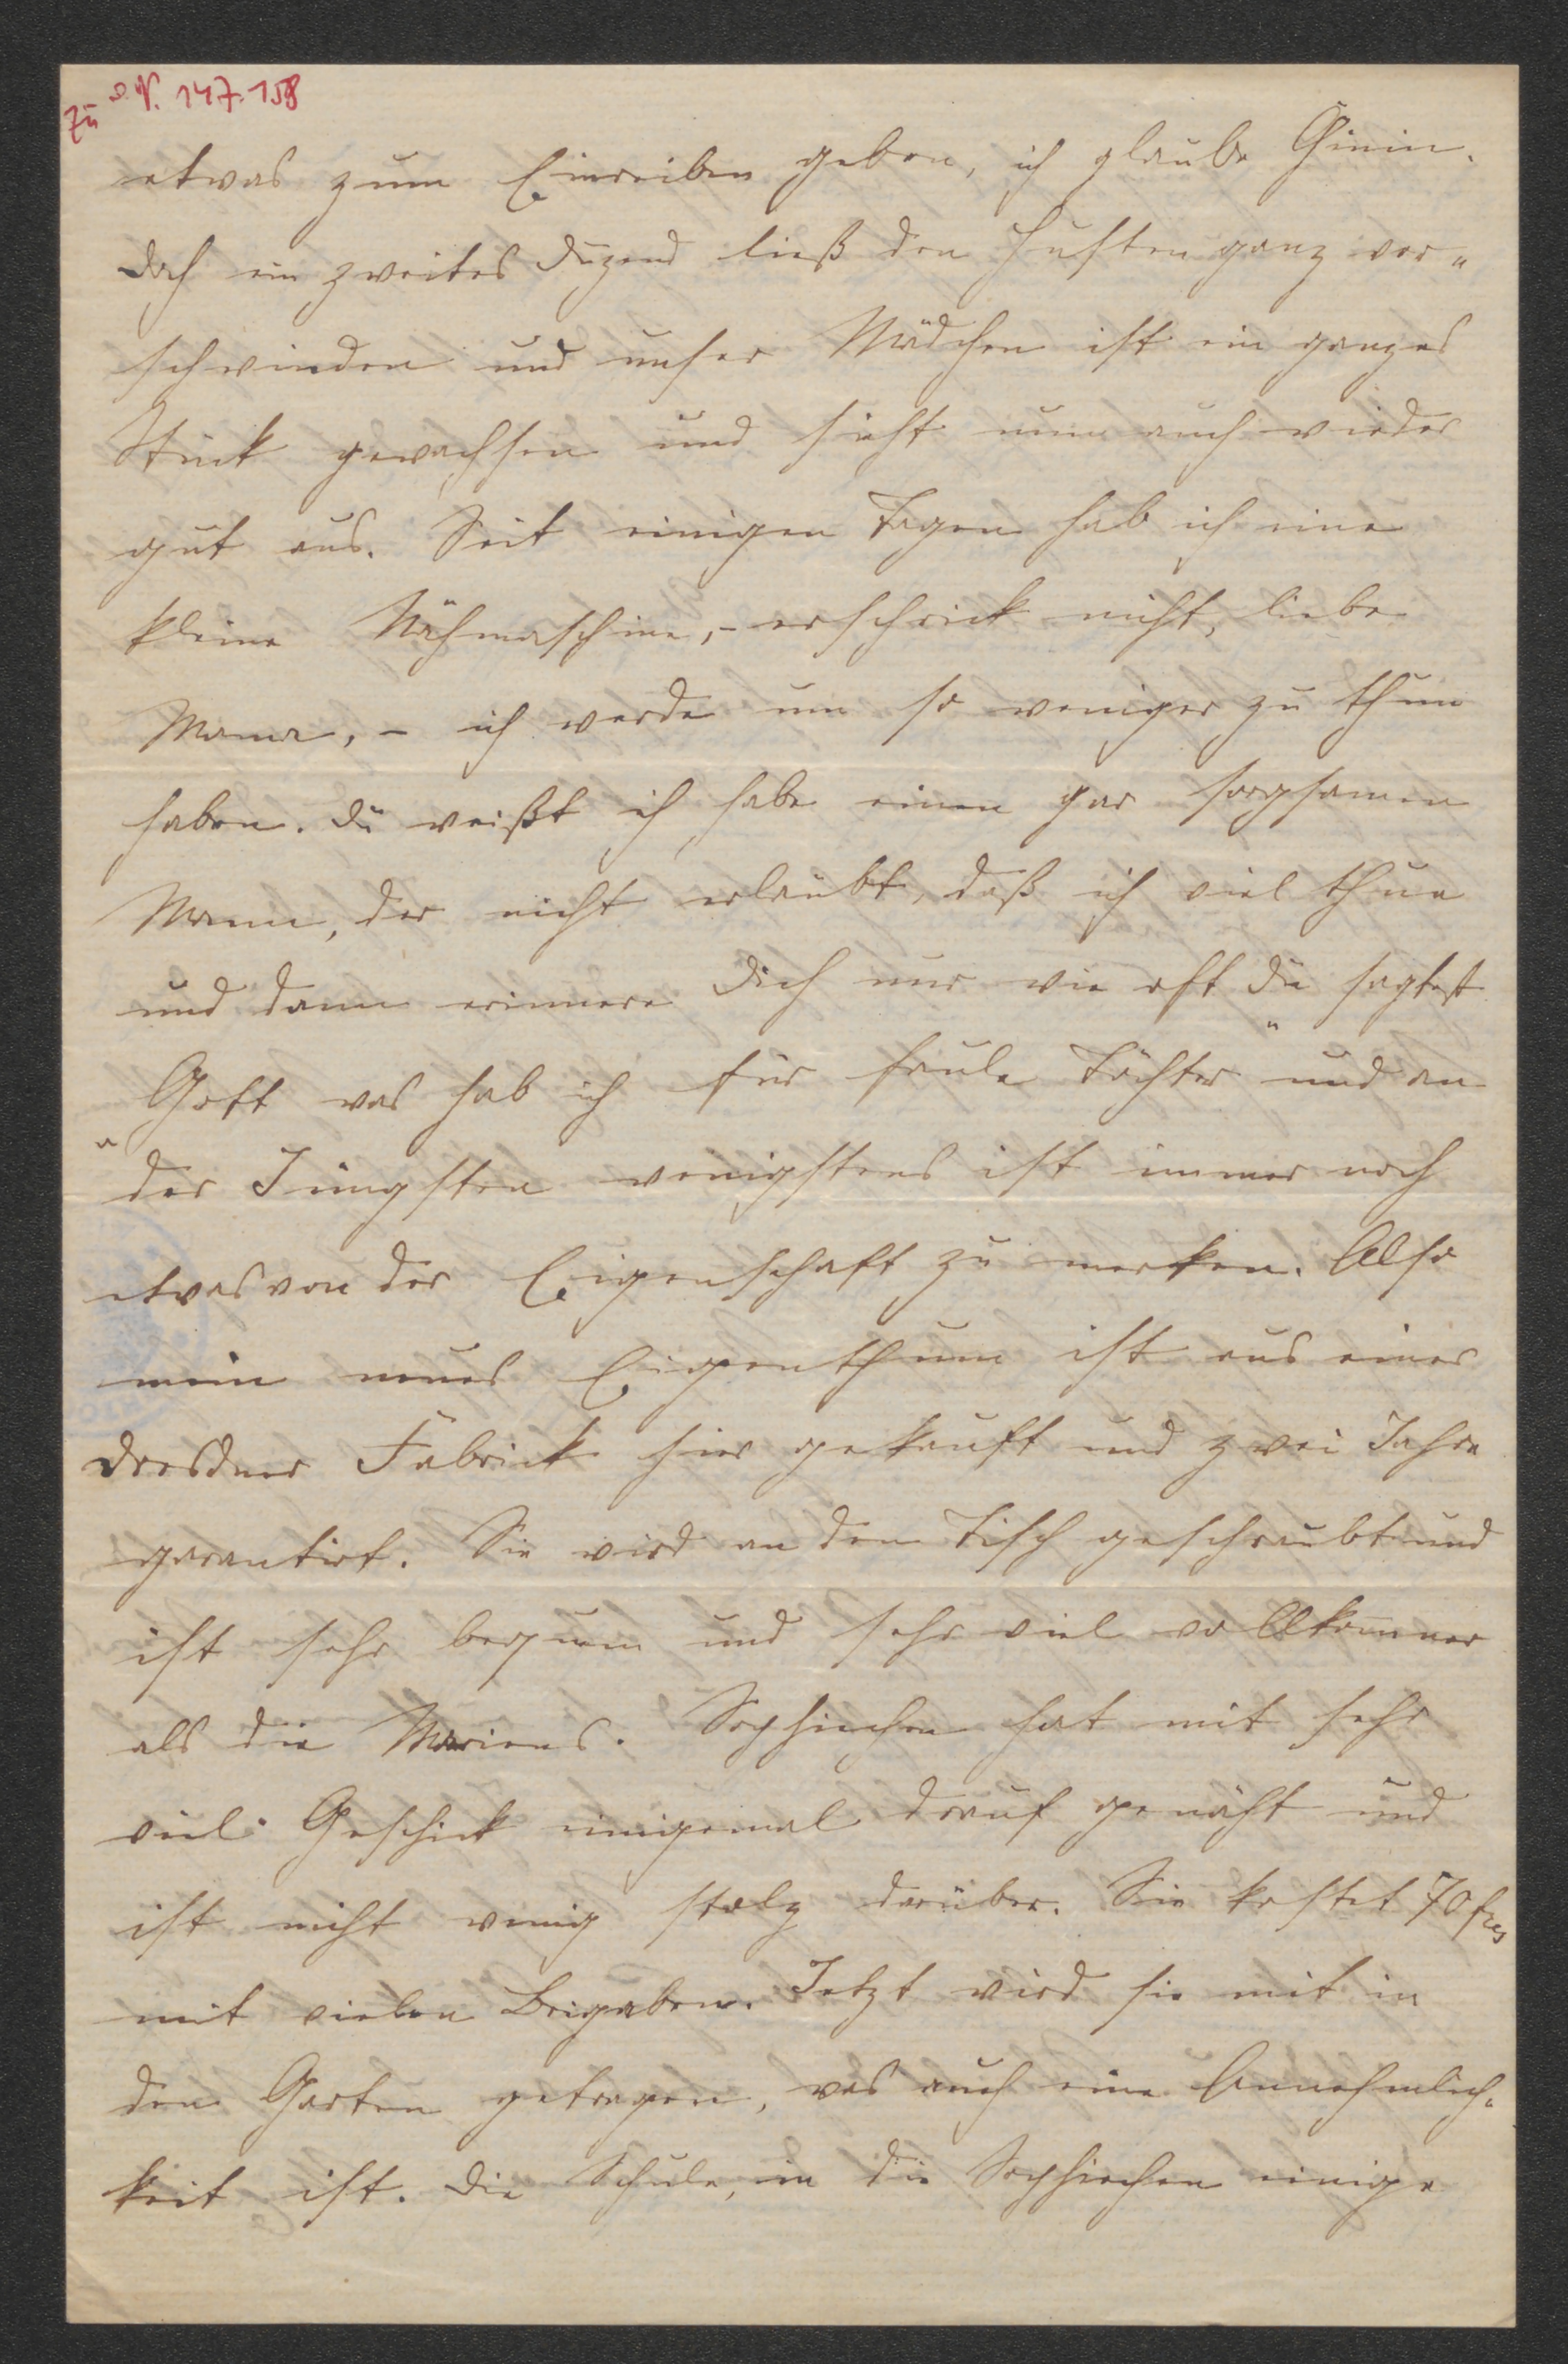 Zu d. N. 147-158
etwas zum Einreiben geben, ich glaube Chinin.
Doch ein zweites Duzend ließ den Husten ganz ver„
schwinden und unser Mädchen ist ein ganzes
Stück gewachsen und sieht nun auch wieder
gut aus. Seit einigen Tagen hab ich eine
kleine Nähmaschine, - erschrick nicht, liebe
Mama, - ich werde um so weniger zu thun
haben. Du weißt ich habe einen gar sorgsamen
Mann, der nicht erlaubt, daß ich viel thue
und dann erinnere Dich nur wie oft Du sagtest
„Gott was hab ich für faule Töchter" und an
der Jüngsten wenigstens ist immer noch
etwas von der Eigenschaft zu merken. Also
mein neues Eigenthum ist aus einer
Dresdner Fabrick hier gekauft und zwei Jahre
garantirt. Sie wird an den Tisch geschraubt und
ist sehr bequem und sehr viel vollkom̅ner
als die Mariens. Sophiechen hat mit sehr
viel Geschick einigemal drauf genäht und
ist nicht wenig stolz darüber. Sie kostet 70 frcs
mit vielen Beigaben. Jetzt wird sie mit in
den Garten getragen, was auch eine Annehmlich„
keit ist. Die Schule, in die Sophiechen einige